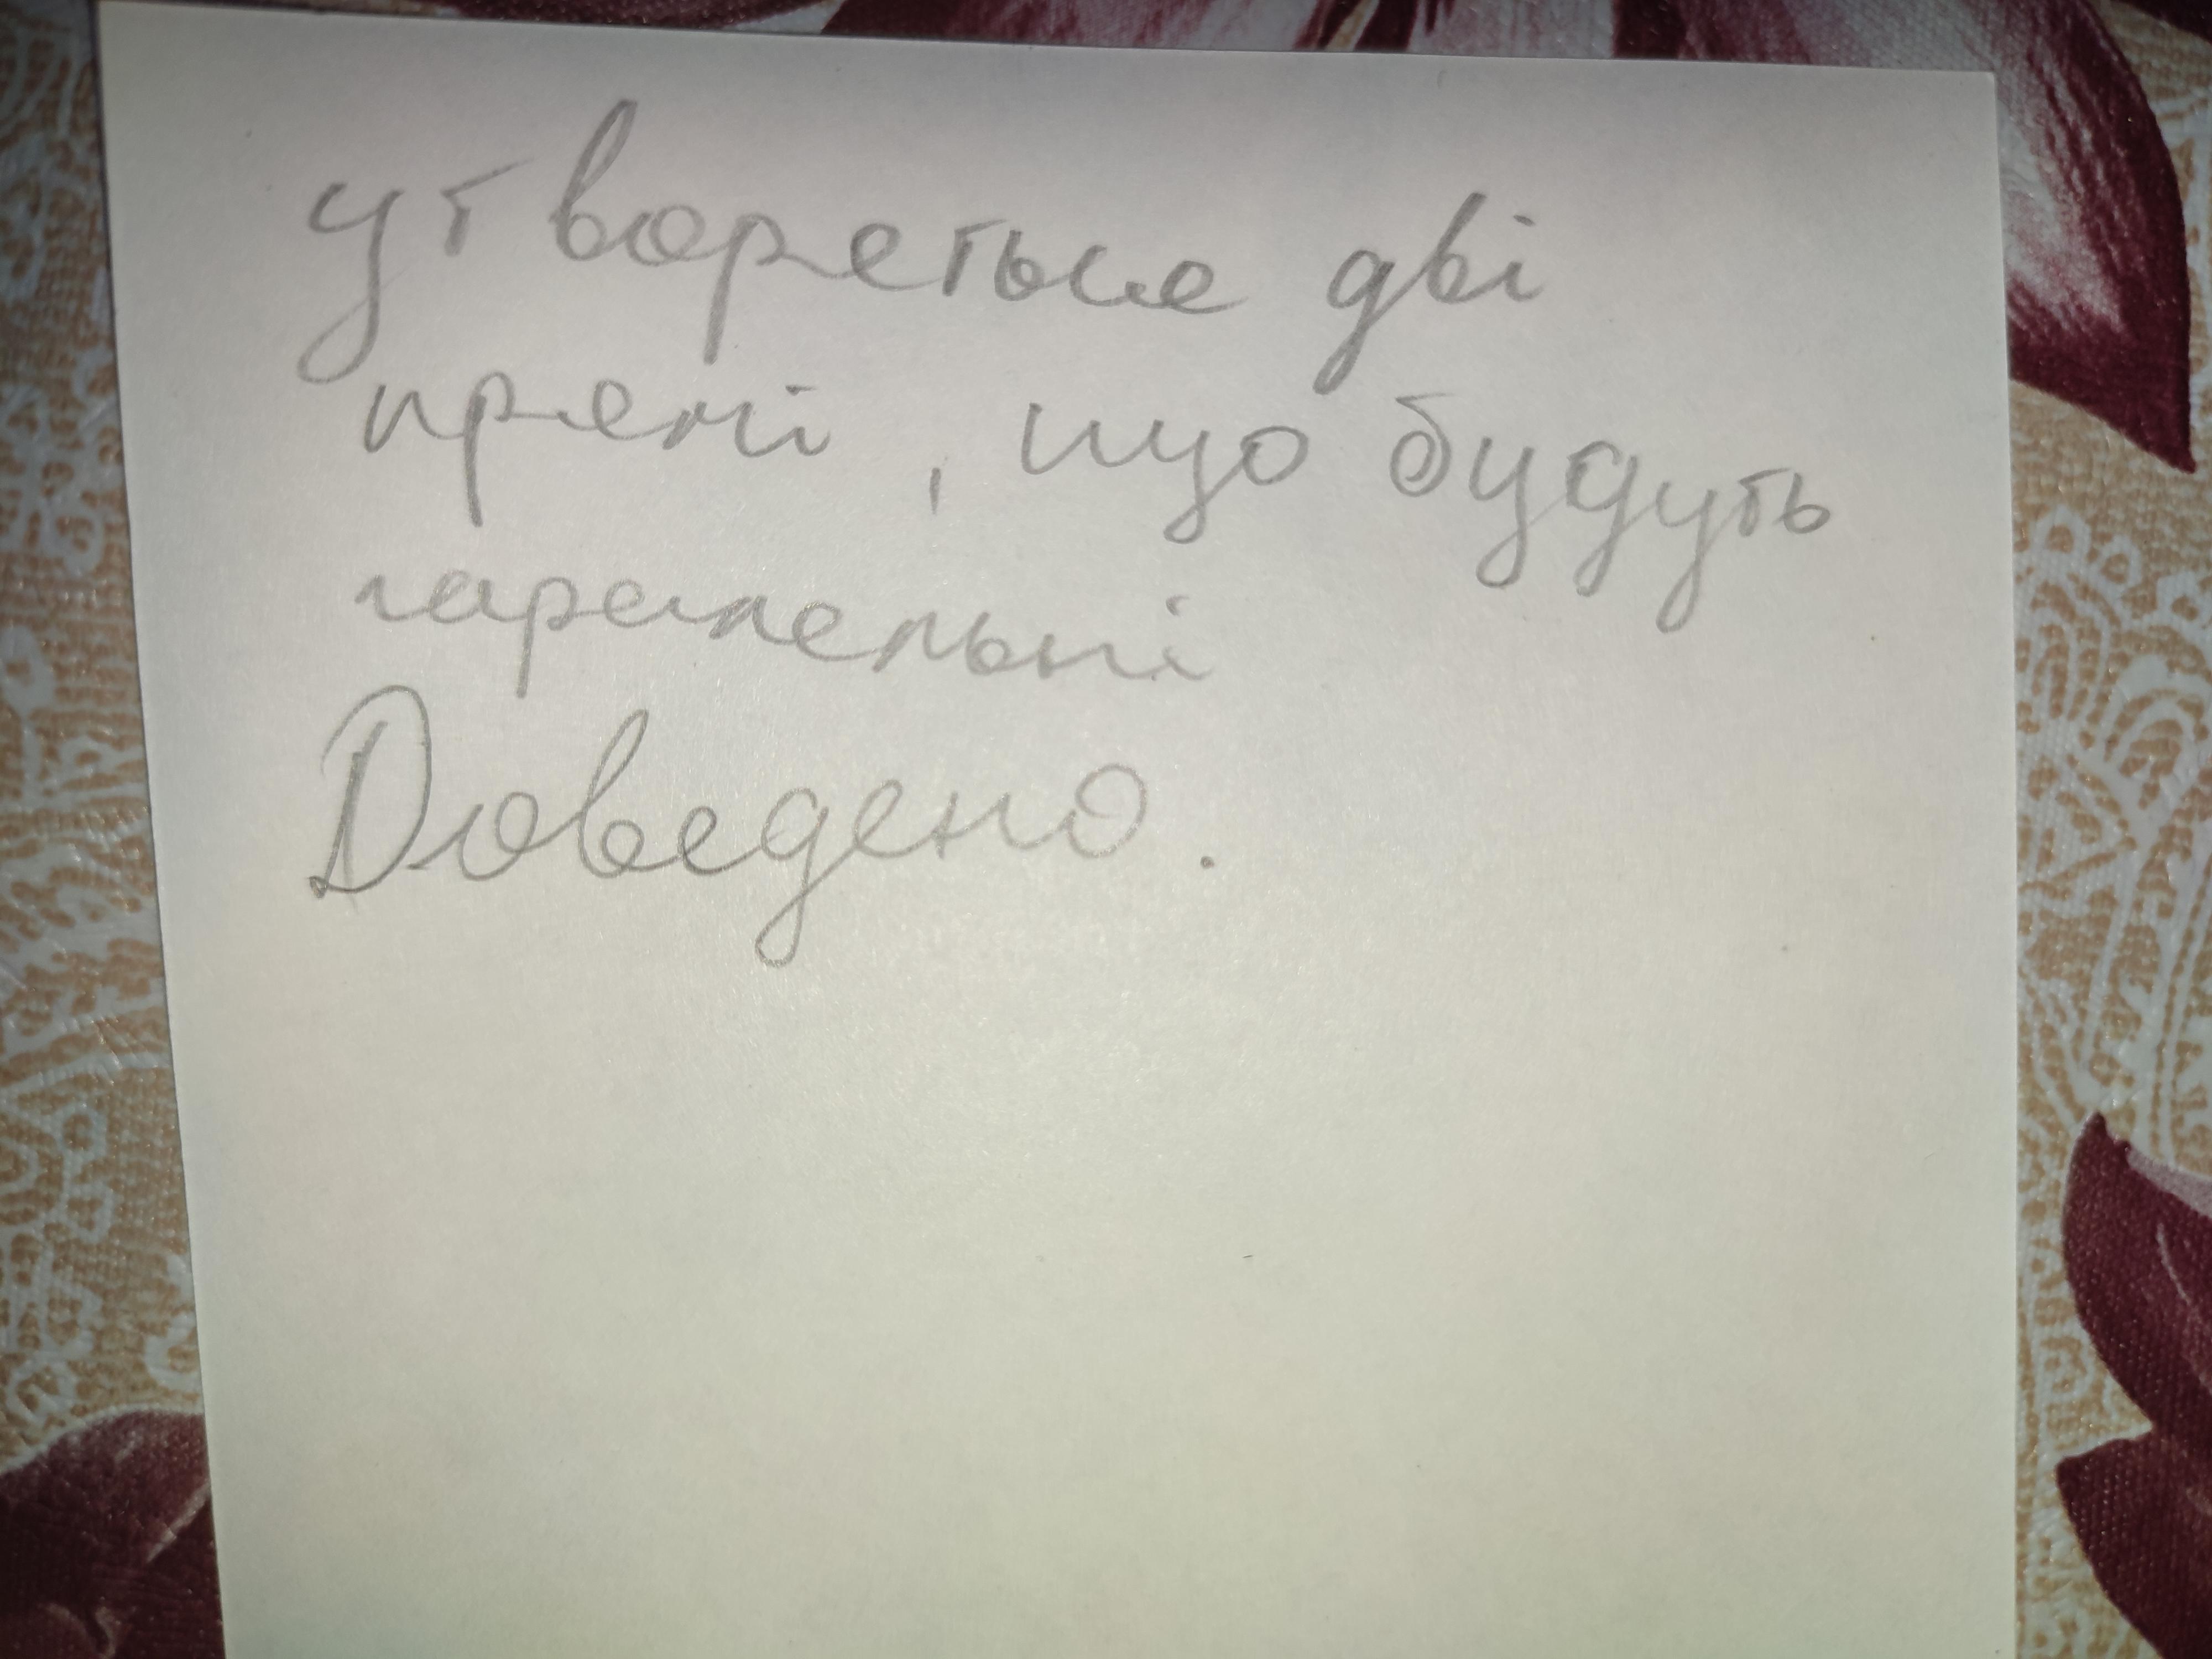 утвореться дві
прямі, що будуть
паралельні
Доведено.